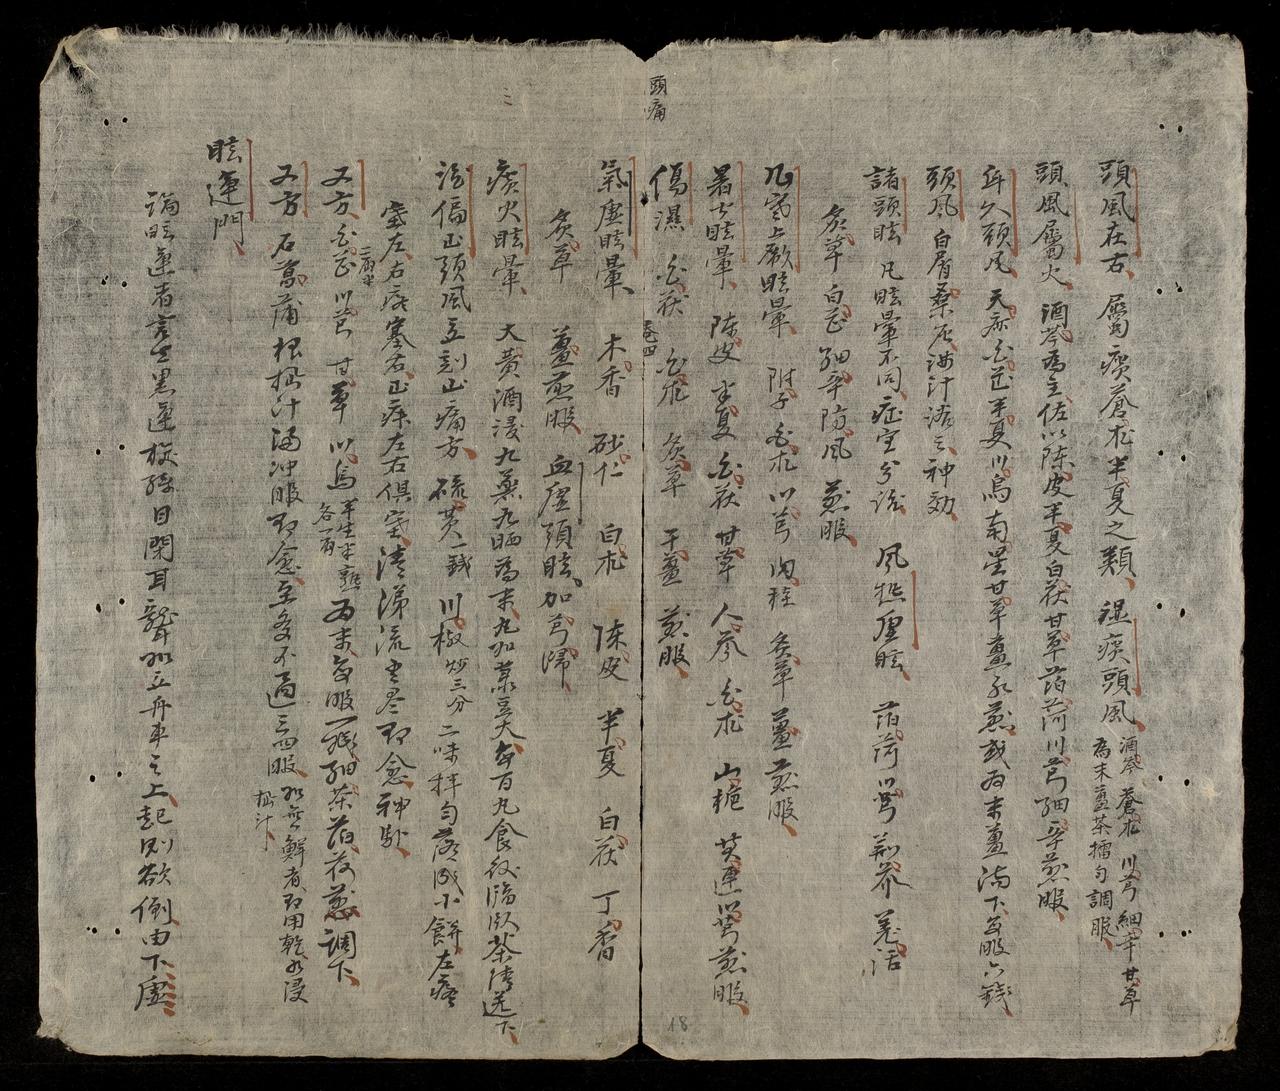 頭痛
頭風在右 屬痰蒼朮半夏之類 湿痰頭風 酒芩 蒼朮 川芎 細辛 甘草
為末薑茶擂匀調服
頭風屬火 酒芩為主佐以陳皮半夏白茯甘草萡荷川芎細辛煎服
年久頭風 天麻白芷半夏川烏南星甘草薑水煎或為末薑湯下每服六錢
頭風 白屑桑灰淋汁洛之神効
諸頭眩 凡眩暈不同症宜分治 風热理眩 萡荷川芎荆芥羗活
炙草白芷細辛防風 煎服
凡氣上厥眩暈 附子白朮川芎肉桂 炙草薑煎服
暑古眩暈 陳皮半夏白茯甘草人参白朮山梔黄連川芎煎服
傷濕 白茯 白朮 炙草 干薑 煎服
卷四
18
氣虛眩暈 木香 砂仁 白朮 陳皮 半夏 白茯 丁香
炙草 薑煎服 血虛頭眩加芎歸
痰火眩暈 大黄酒浸九蒸九晒為末丸如菉豆大每百丸食後臨臥茶清送下
治偏正頭風立刻止痛方 硫黄一錢川椒炒三分二味拌匀為小餅左疼
塞左右疼塞右正疼左右俱塞清涕流出尽即愈神馱
又方 白芷二両半 川芎 甘草 川烏半生半熟各一両 為末每服一錢細茶萡荷煎調下
又方 石菖蒲根搗汁湯冲服即愈至多不過三四服如無鮮者即用乾水浸
搗汁
眩運門
論眩運者言其黑運旋轉目閉耳聾如立舟車之上起則欲倒由下虛